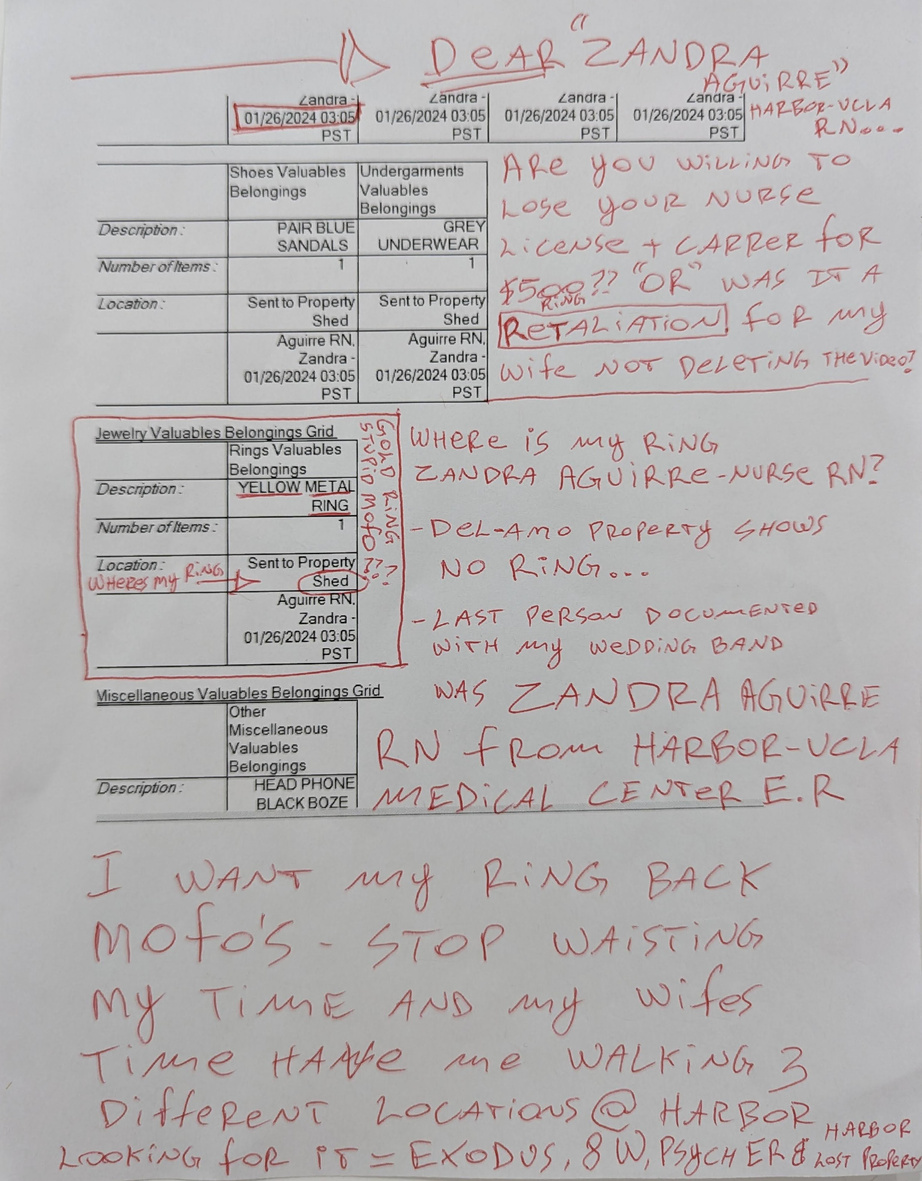 DEAR "ZANDRA
AGUiRRE"
HARBOR-UCLA
RN...
Zandra - Zandra - Zandra - Zandra -
01/26/2024 03:05 01/26/2024 03:05 01/26/2024 03:05 01/26/2024 03:05
PST PST PST PST
ARe you WiLLiNG TO
Lose youR NuRse
LiceNse + CARReR foR
$500?? "OR" WAS IT A
RiNG
ReTALiATiON foR my
Wife NOT DELETiNG THE ViDEO?
Shoes Valuables Undergarments
Belongings Valuables
Belongings
Description : PAIR BLUE GREY
SANDALS UNDERWEAR
Number of Items : 1 1
Location : Sent to Property Sent to Property
Shed Shed
Aguirre RN, Aguirre RN,
Zandra - Zandra -
01/26/2024 03:05 01/26/2024 03:05
PST PST
Jewelry Valuables Belongings Grid
Rings Valuables
Belongings
Description : YELLOW METAL
RING
Number of Items : 1
Location : Sent to Property
WHERES MY RiNG Shed
Aguirre RN,
Zandra -
01/26/2024 03:05
PST
GOLD RiNG
STUPiD MOfO ???
WHeRe iS my RiNG
ZANDRA AGUiRRe-NURSe RN?
-DeL-AMO PROPeRTy SHOWS
NO RiNG...
-LAST PeRSON DOCUMeNTeD
WiTH my WeDDiNG BAND
WAS ZANDRA AGUiRRE
RN fROm HARBOR-UCLA
MEDiCAL CENTeR E.R
Miscellaneous Valuables Belongings Grid
Other
Miscellaneous
Valuables
Belongings
Description : HEAD PHONE
BLACK BOZE
I WANT my RiNG BACK
MOfO'S - STOP WAiSTiNG
My TimE AND my Wifes
Time HAVe me WALKiNG 3
DiffeReNT LOCATiONS @ HARBOR
LOOKiNG foR iT = EXODUS, 8W, PSycH ER & HARBOR
LOST PROPeRTy